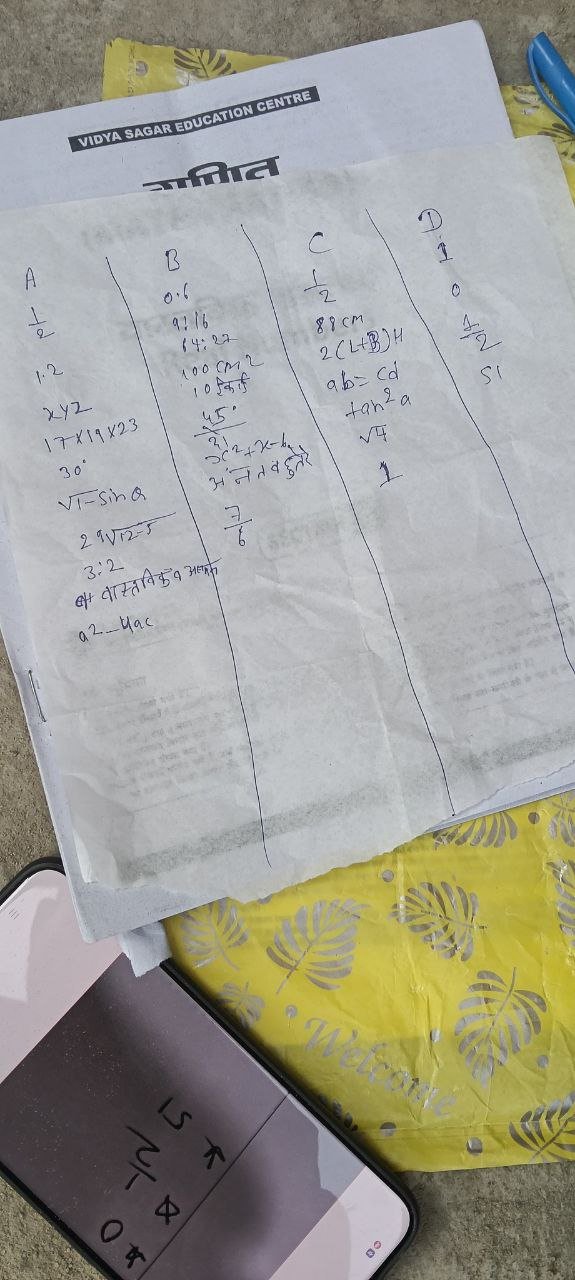 VIDYA SAGAR EDUCATION CENTRE
गणित
A
1/2
1.2
xyz
17×19×23
30°
√1-sinθ
29√12-5
3:2
वास्तविक व
a2-4ac
B
0.6
9:16
64:27
100 cm2
10
45°
21
अनन्त
7/6
C
1/2
88 cm
2(L+B)H
ab=cd
tan2a
√4
1
D
1
0
1/2
51
Welcome
51
1/2
0